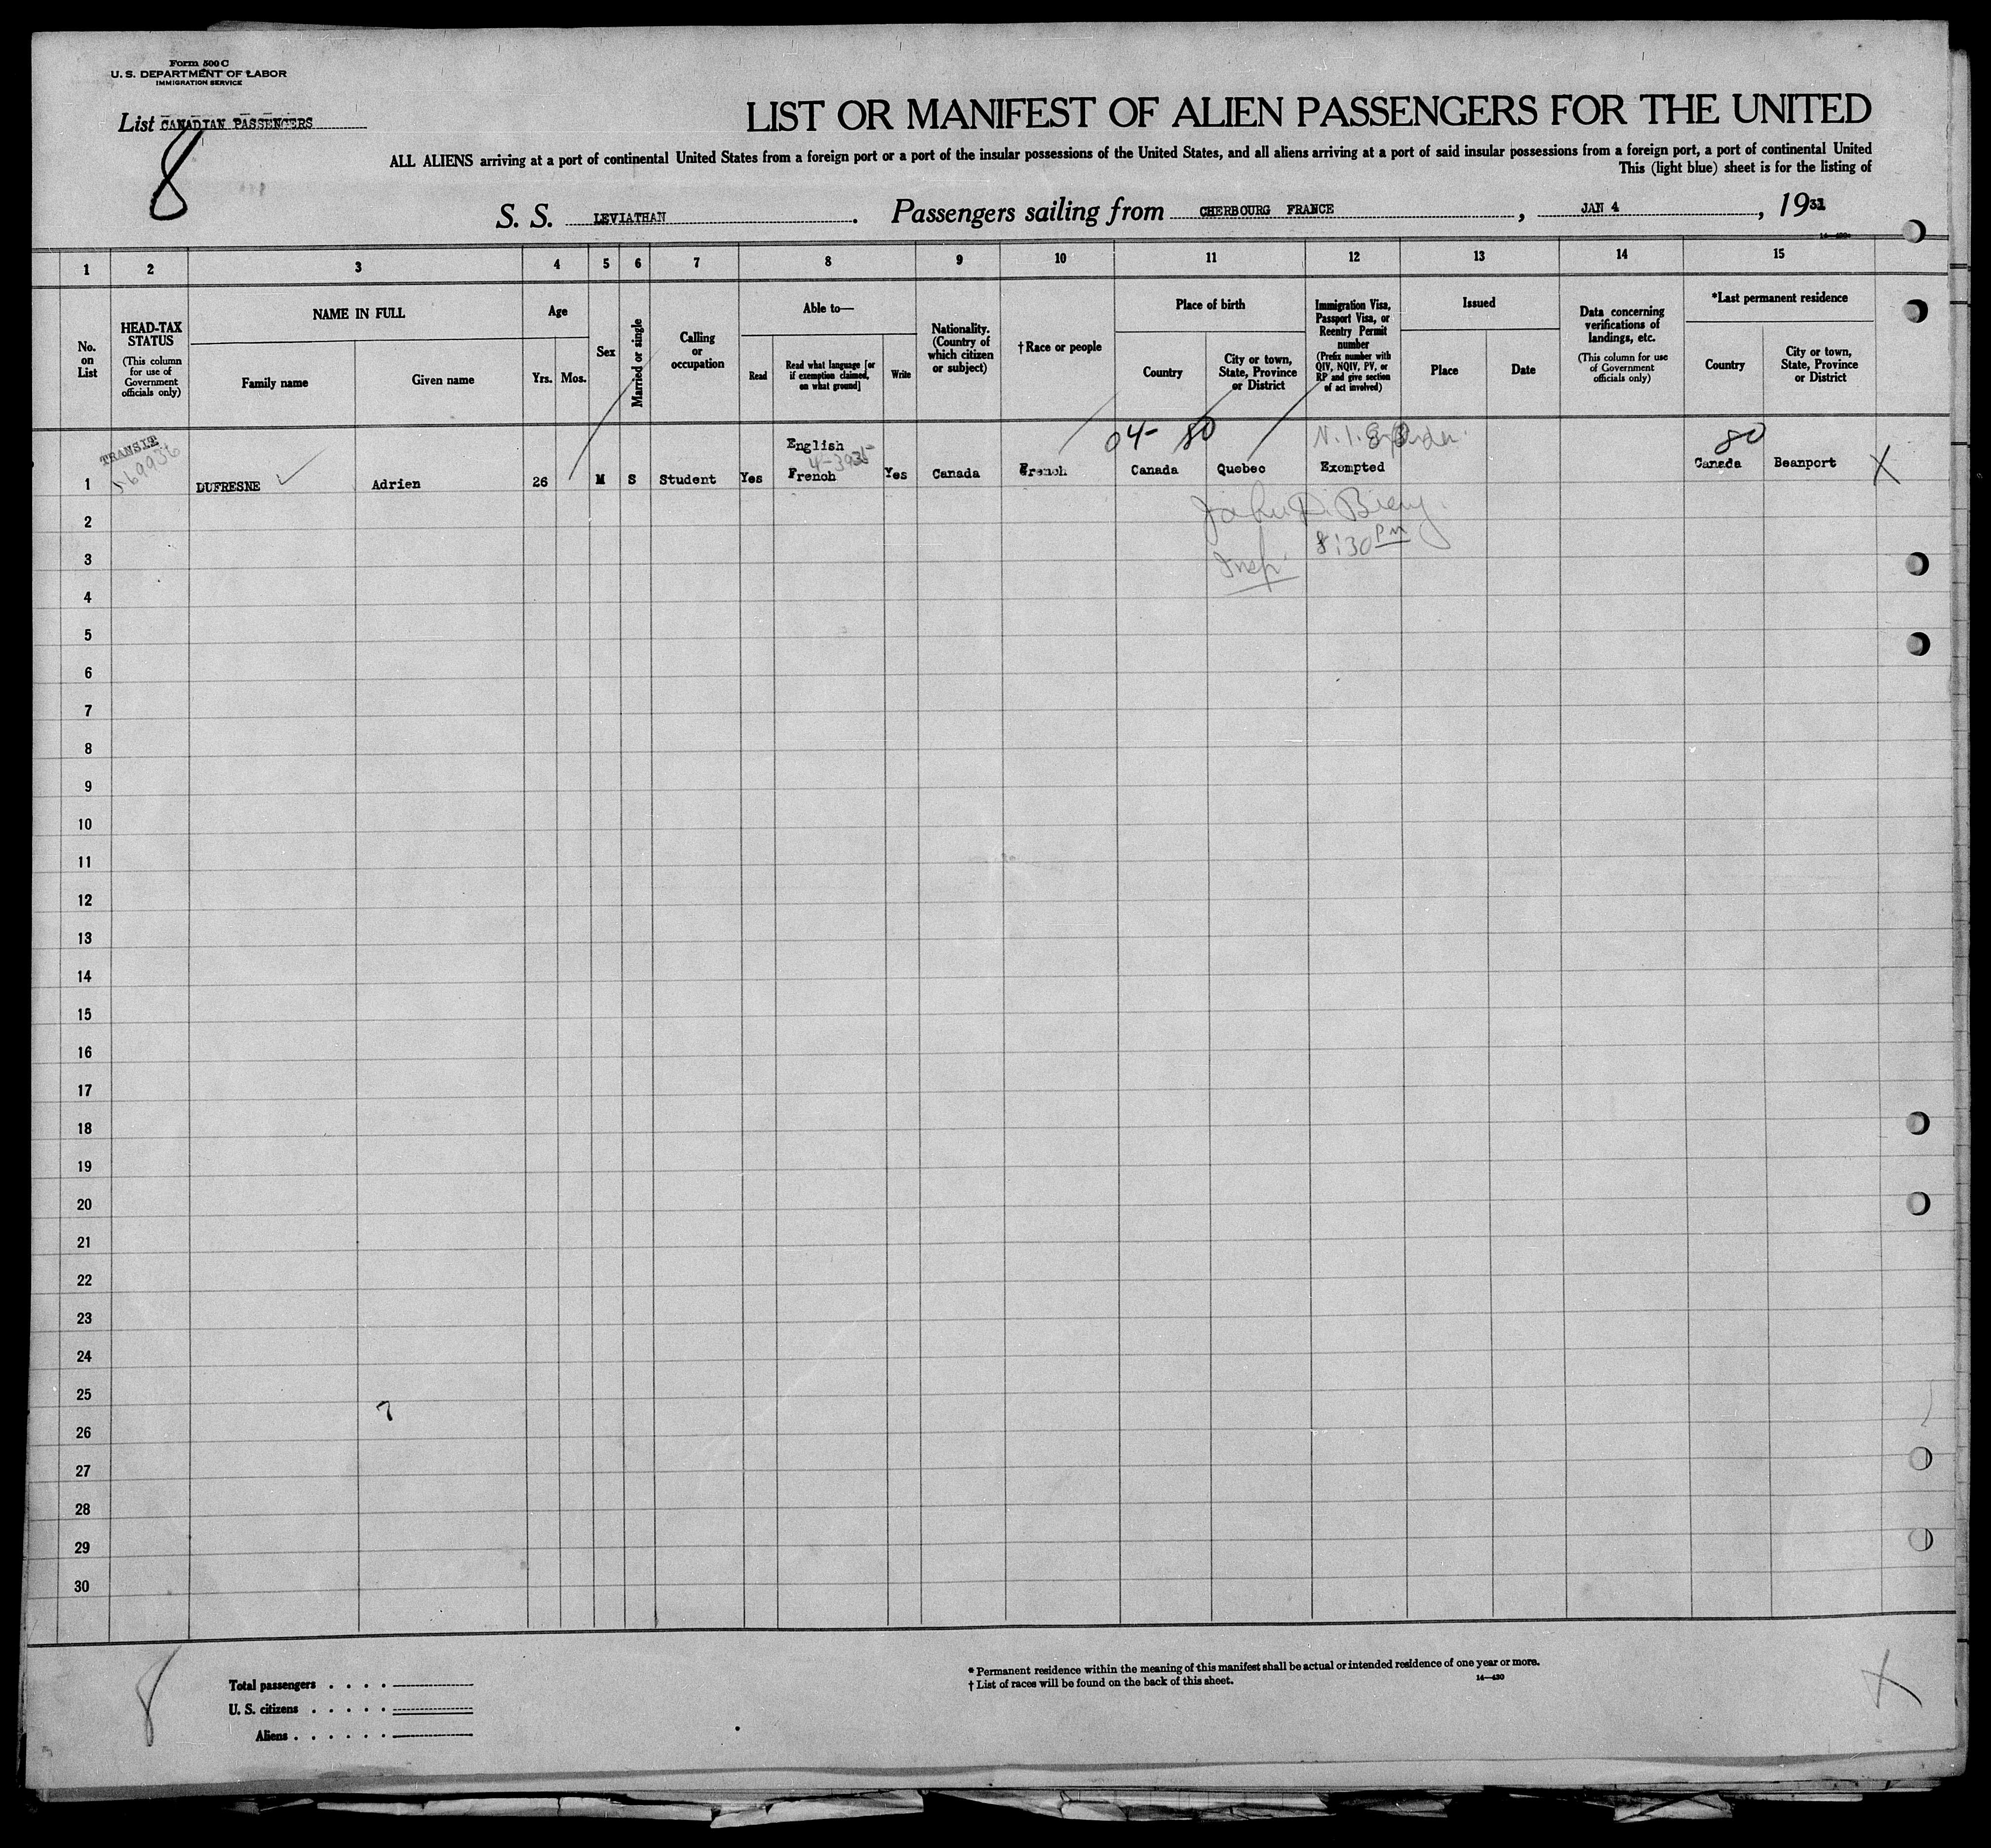 Form 500 C
U. S. DEPARTMENT OF LABOR
IMMIGRATION SERVICE
List CANADIAN PASSENGERS
8
LIST OR MANIFEST OF ALIEN PASSENGERS FOR THE UNITED
ALL ALIENS arriving at a port of continental United States from a foreign port or a port of the insular possessions of the United States, and all aliens arriving at a port of said insular possessions from a foreign port, a port of continental United
This (light blue) sheet is for the listing of
S. S. LEVIATHAN. Passengers sailing from CHERBOURG FRANCE, JAN 4, 1931
1 2 3 4 5 6 7 8 9 10 11 12 13 14 15
No. on List
HEAD-TAX STATUS
(This column for use of Government officials only)
NAME IN FULL
Family name
Given name
Age
Yrs. Mos.
Sex
Married or single
Calling or occupation
Able to—
Read
Read what language [or if exemption claimed, on what ground]
Write
Nationality. (Country of which citizen or subject)
† Race or people
Place of birth
Country
City or town, State, Province or District
Immigration Visa, Passport Visa, or Reentry Permit number
(Prefix number with QIV, NQIV, PV, or RP and give section of act involved)
Issued
Place
Date
Data concerning verifications of landings, etc.
(This column for use of Government officials only)
*Last permanent residence
Country
City or town, State, Province or District
TRANSIT
569936
04- 80
80
English
4-3935
1 DUFRESNE Adrien 26 M S Student Yes French Yes Canada French Canada Quebec Exempted Canada Beanport X
2
8:30 PM
3 Insp
4
5
6
7
8
9
10
11
12
13
14
15
16
17
18
19
20
21
22
23
24
25
26
27
28
29
30
8
Total passengers
U. S. citizens
Aliens
* Permanent residence within the meaning of this manifest shall be actual or intended residence of one year or more.
† List of races will be found on the back of this sheet.
14—430
X